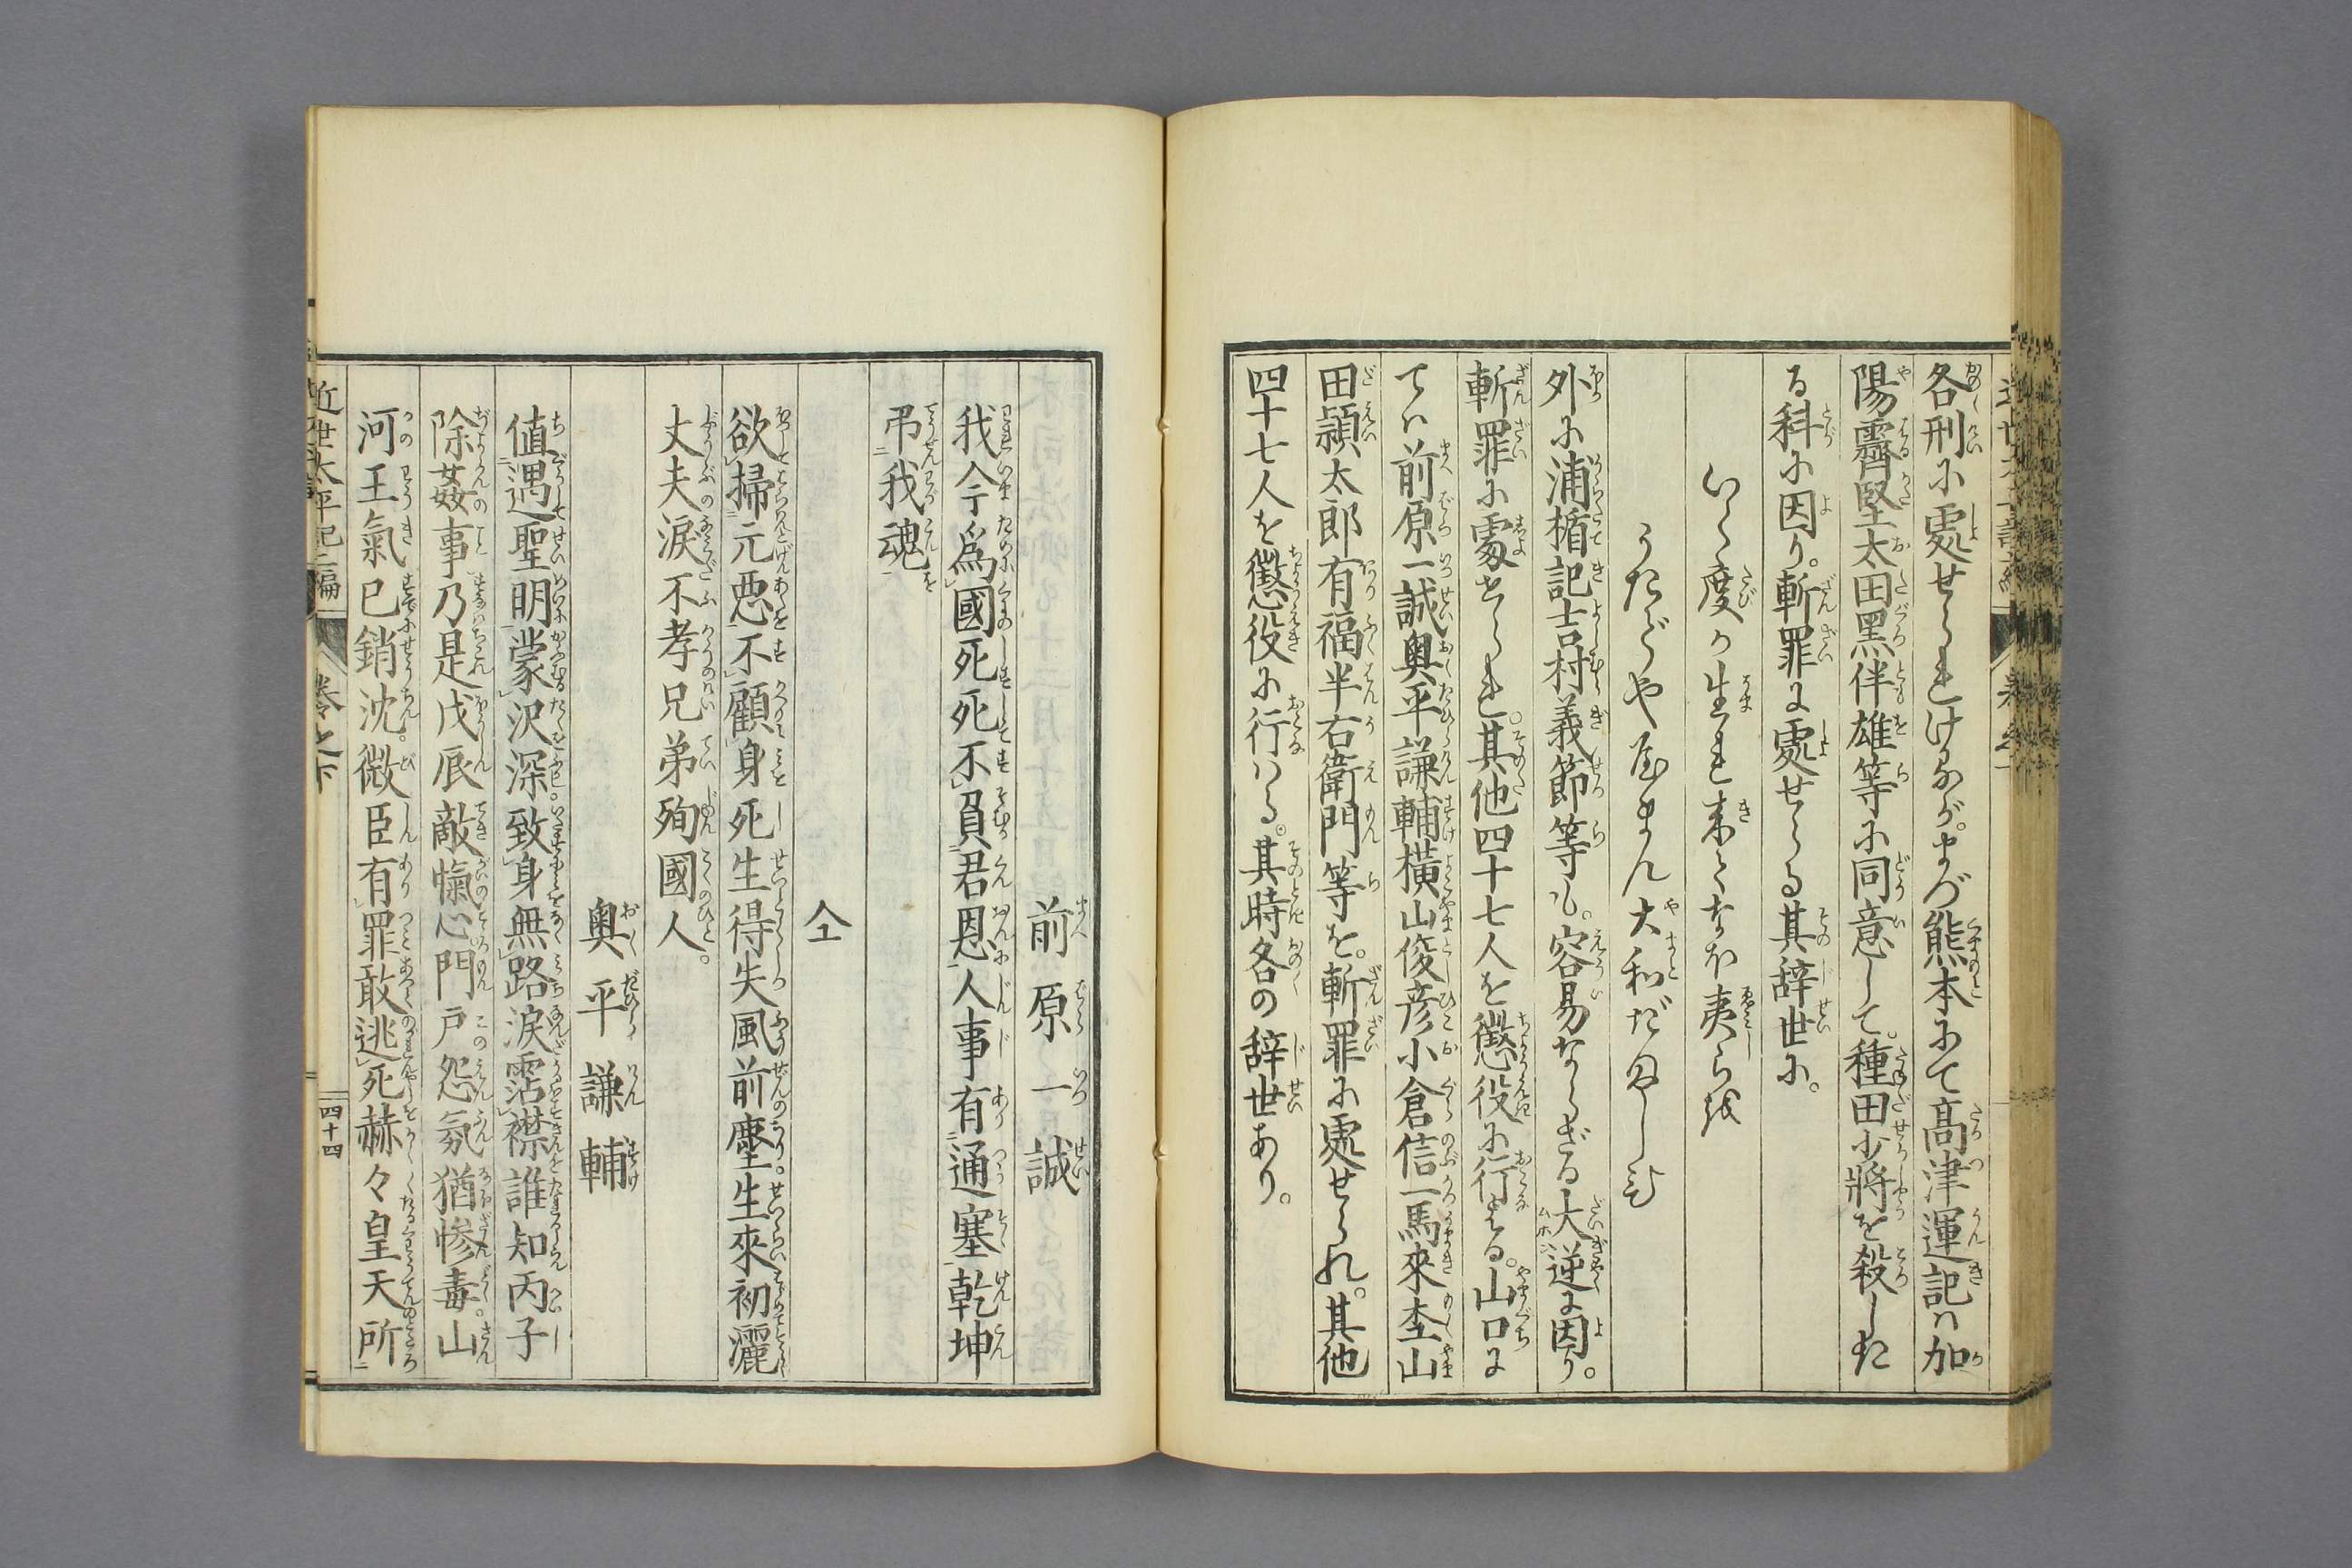 各刑に處せられけるが。まづ熊本にて髙津運記ハ加
陽霽堅太田黒伴雄等に同意して。種田少將を殺した
る科に因り。斬罪に處せらる其辞世に。
いく度か生れ来てなほ夷らを
うたでややまん大和だましひ
外に浦楯記吉村義節等も。容易ならざる大逆に因り。
斬罪に處せられ。其他四十七人を懲役に行はる。山口に
てハ前原一誠奥平謙輔横山俊彦小倉信一馬來杢山
田頴太郎有福半右衛門等を。斬罪に處せられ。其他
四十七人を懲役に行ハる。其時各の辞世あり。
前原一誠
我今爲國死死不負君恩人事有通塞乾坤
弔我魂
仝
欲掃元悪不顧身死生得失風前塵。生來初灑
丈夫淚不孝兄弟殉國人。
奥平謙輔
値遇聖明蒙沢深。致身無路淚霑襟誰知丙子
除姦事乃是戊辰敵愾心。門戸怨氛猶惨毒。山
河王氣已銷沈。微臣有罪敢逃死赫々皇天所
近世太平記二編 巻之下 四十四